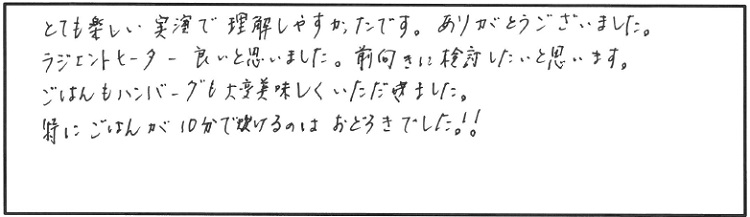 とても楽しい実演で理解しやすかったです。ありがとうございました。
ラジエントヒーター良いと思いました。前向きに検討したいと思います。
ごはんもハンバーグも大変美味しくいただきました。
特にごはんが10分で炊けるのはおどろきでした!!